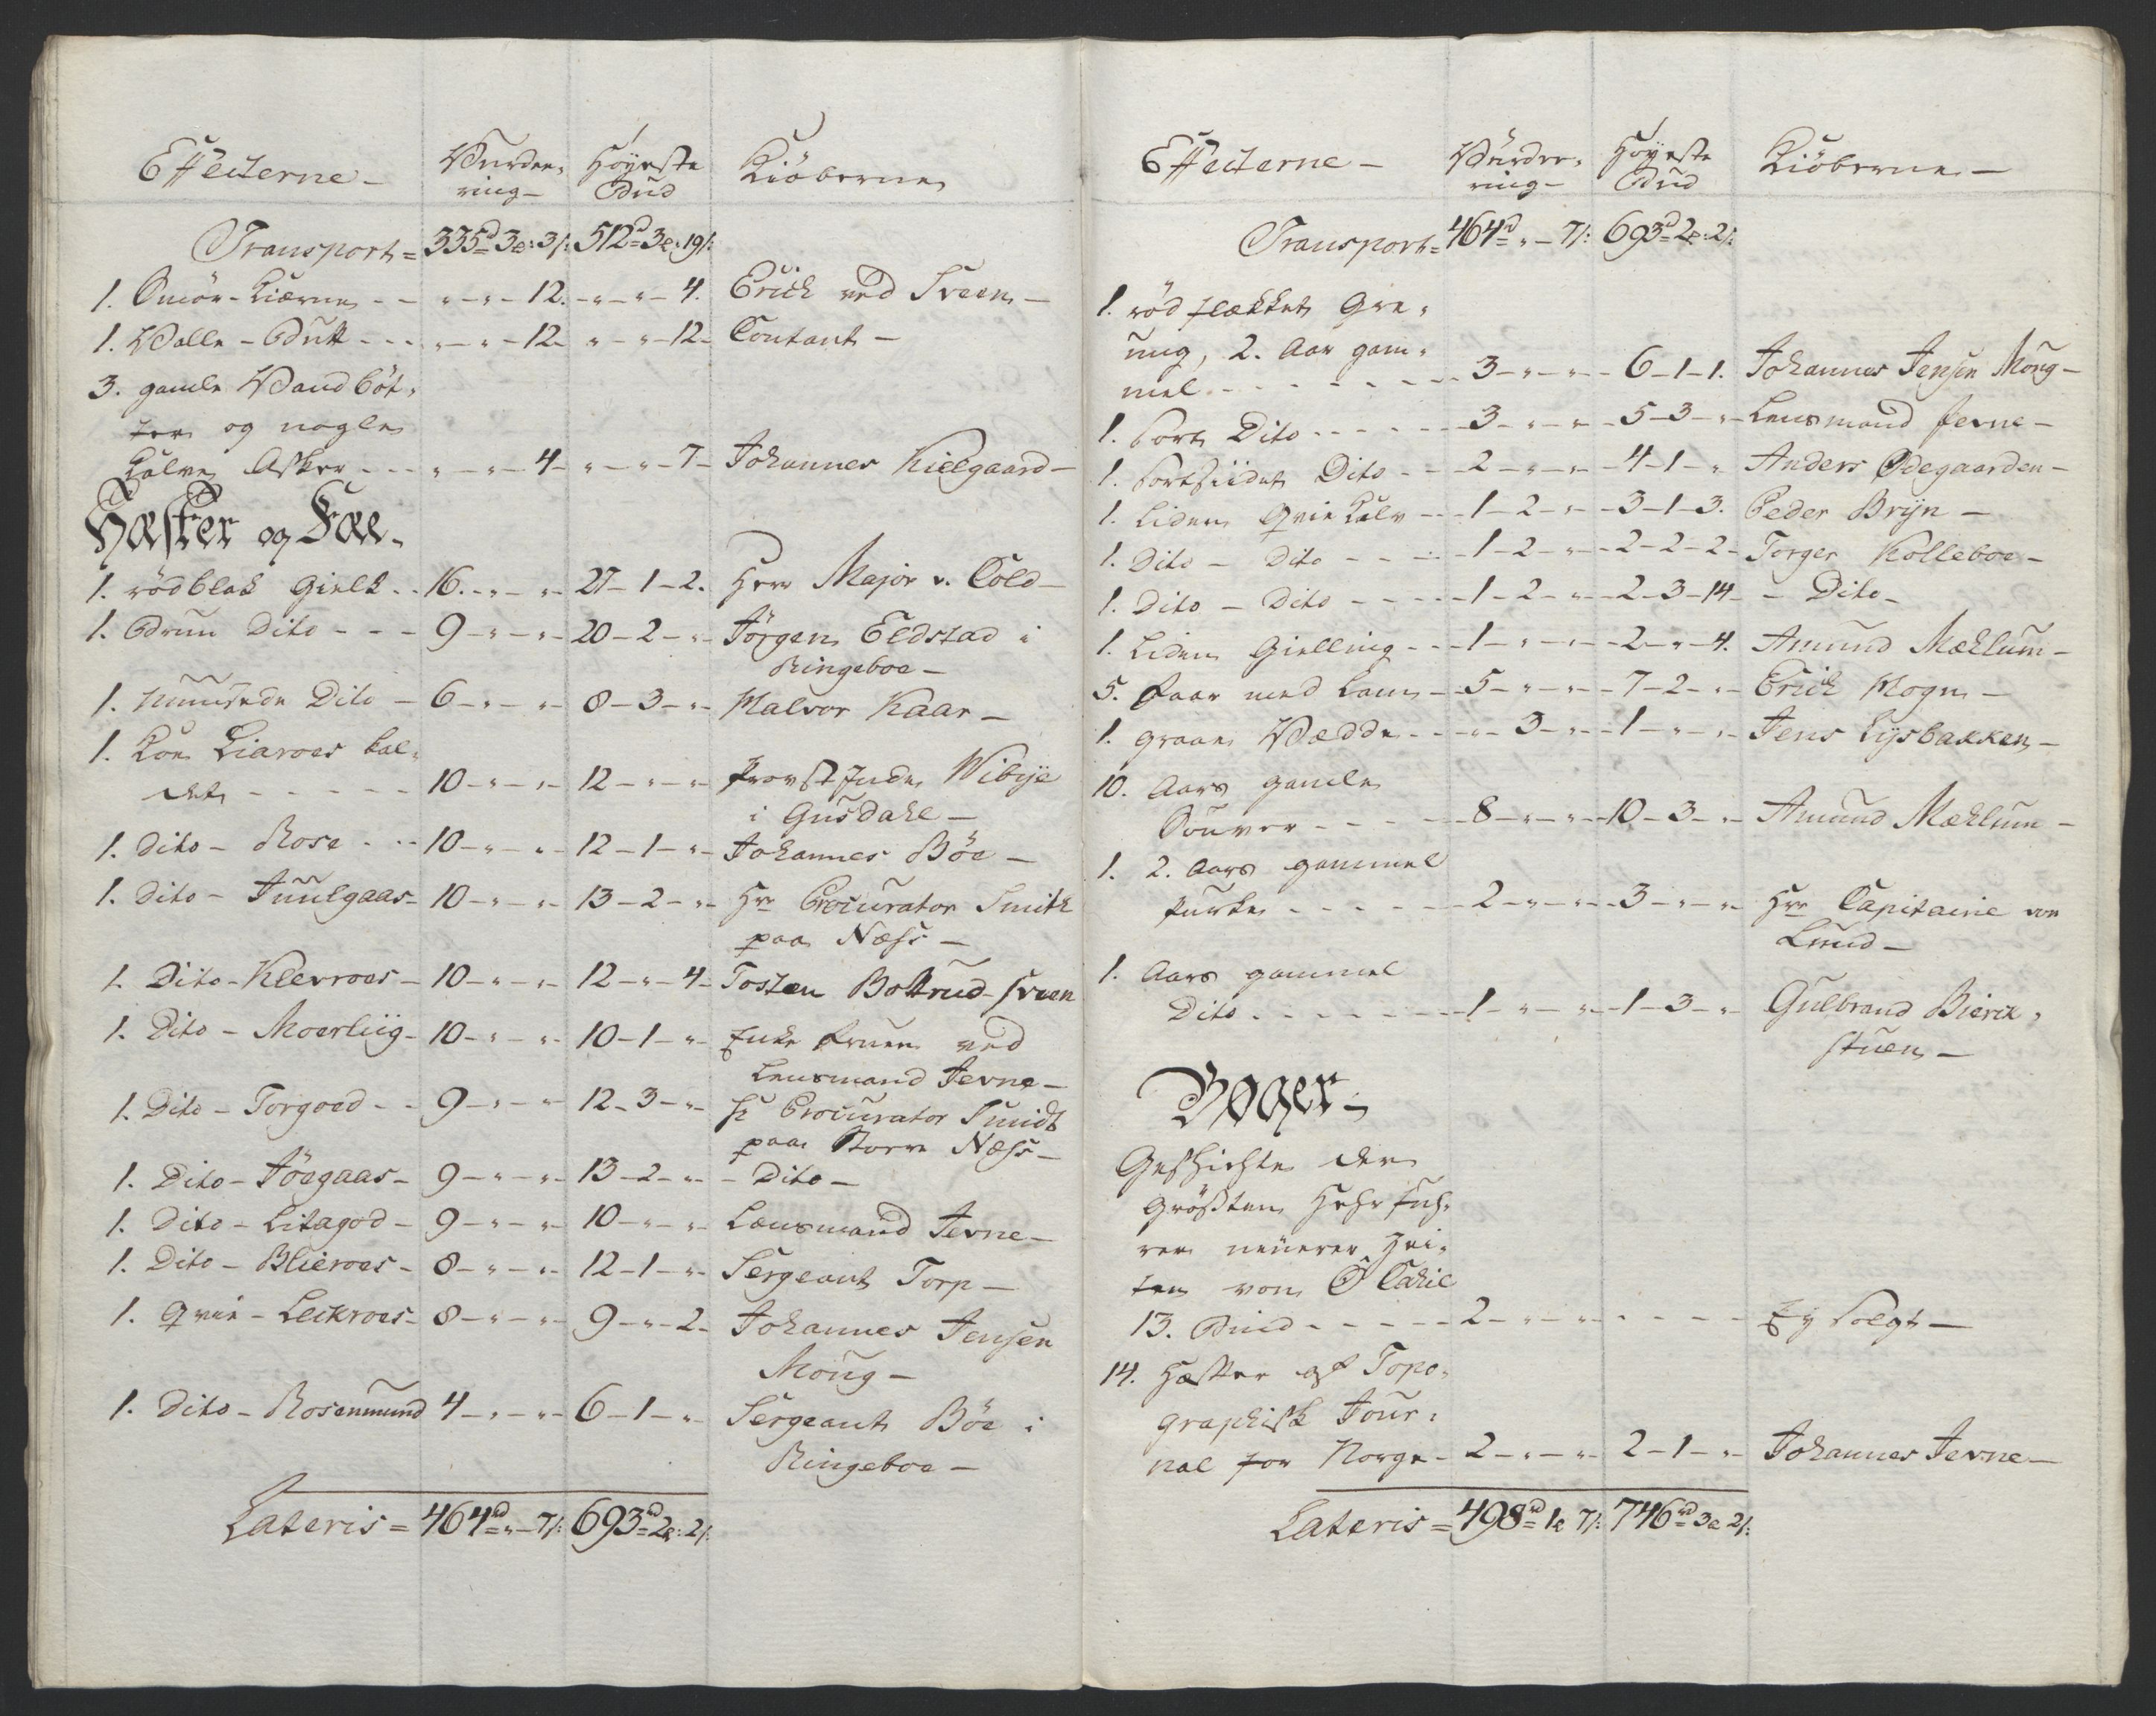 Effecterne – Vurde- Høyeste Kiöberne
ring – Bud
Transport = 335rd 3o: 3s: 512rd 3o: 19s:
1. Smör-Kiærne – – „ – „ – 12. – „ – „ – 4. Erich ved Sveen –
1. Valle-Butt – – – „ – „ – 12 – „ – „ – 12 – Contant –
3. gamle Vand böt-
ter og nogle
Kalve Asker – – – „ – „ – 4 – „ – „ – 7 – Johannes Kielgaard –
Hæster og Fæe.
1. rödblak Gielk – – 16. – „ – „ – 27 – 1 – 2. Herr Major v. Cold –
1. Brun Dito – – – 9 – „ – „ – 20 – 2 – „ – Jörgen Eldstad i
Ringeboe –
1. Muusede Dito – 6 – „ – „ – 8 – 3 – „ – Halvor Kaar –
1. Koe Liaroes kal-
det – – – – – 10 – „ – „ – 12 – „ – „ – Provstinde Wibye
i Gusdahl –
1. Dito – Rose – – – 10 – „ – „ – 12 – 1 – „ – Johannes Böe –
1. Dito – Juulgaas – 10 – „ – „ – 13 – 2 – „ – Hr Procurator Smith
paa Næss –
1. Dito – Klevroes – 10 – „ – „ – 12 – „ – 4 – Tosten Bottrud-sveen
1. Dito – Moerliig – 10 – „ – „ – 10 – 1 – „ – Enke Fruen ved
Lensmand Jevne –
1. Dito – Torgoed – – 9 – „ – „ – 12 – 3 – „ – Hr Procurator Smidt
paa Store Næss –
1. Dito – Jöegaas – 9 – „ – „ – 13 – 2 – „ – – Dito –
1. Dito – Litagod – 9 – „ – „ – 10 – „ – „ – Lensmand Jevne –
1. Dito – Blieroes – 8 – „ – „ – 12 – 1 – „ – Sergeant Torp –
1. Qvie – Leikroes – 8 – „ – „ – 9 – „ – 2 – Johannes Jensen
Moug –
1. Dito – Rosenmund 4 – „ – „ – 6 – 1 – „ – Sergeant Böe i
Ringeboe –
Lateris = 464rd „ – 7s: 693rd 2o: 2s:
Effecterne – Vurde- Høyeste Kiöberne –
ring – Bud
Transport = 464rd „ – 7s: 693rd 2o: 2s:
1. röd flækket Gie-
ung, 2. Aar gam-
mel – – – – – – – 3 – „ – „ – 6 – 1 – 1. Johannes Jensen Moug –
1. Sort Dito – – – – – 3 – „ – „ – 5 – 3 – „ – Lensmand Jevne –
1. Sortsiidet Dito – – 2 – „ – „ – 4 – 1 – „ Anders Ødegaarden –
1. Liden Qvie Kalv – – 1 – 2 – „ – 3 – 1 – 3. Peder Bryn –
1. Dito – Dito – – – – 1 – 2 – „ – 2 – 2 – 2 – Torger Kolleboe –
1. Dito – Dito – – – – 1 – 2 – „ – 2 – 3 – 14 – – Dito –
1. Liden Gielling – – 1 – „ – „ – 2 – „ – 4. Amund Mæhlum –
5. Faar med Lam – – 5 – „ – „ – 7 – 2 – „ – Erich Mogn –
1. graae Vædde – – – „ – 3 – „ – 1 – „ – „ – Jens Lysbakken –
10. Aars gamle
Souver – – – – 8 – „ – „ – 10 – 3 – „ – Amund Mæhlum –
1. 2. Aars gammel
Purke – – – – – 2 – „ – „ – 3 – „ – „ – Hrr Capitaine von
Lund –
1. Aars gammel
Dito – – – – – – – 1 – „ – „ – 1 – 3 – „ – Gulbrand Bierck-
stuen –
Bøger –
Geschichte der
Größten Heerfüh-
rer neuerer Zei-
ten von C Cähil
13. Bind – – – – – 2 – „ – „ – – – – – Ey Solgt –
14. Hæfter af Topo-
graphisk Jour-
nal for Norge – 2 – „ – „ – 2 – 1 – „ – Johannes Jevne –
Lateris = 498rd 1o 7s: 746rd 3o 2s: